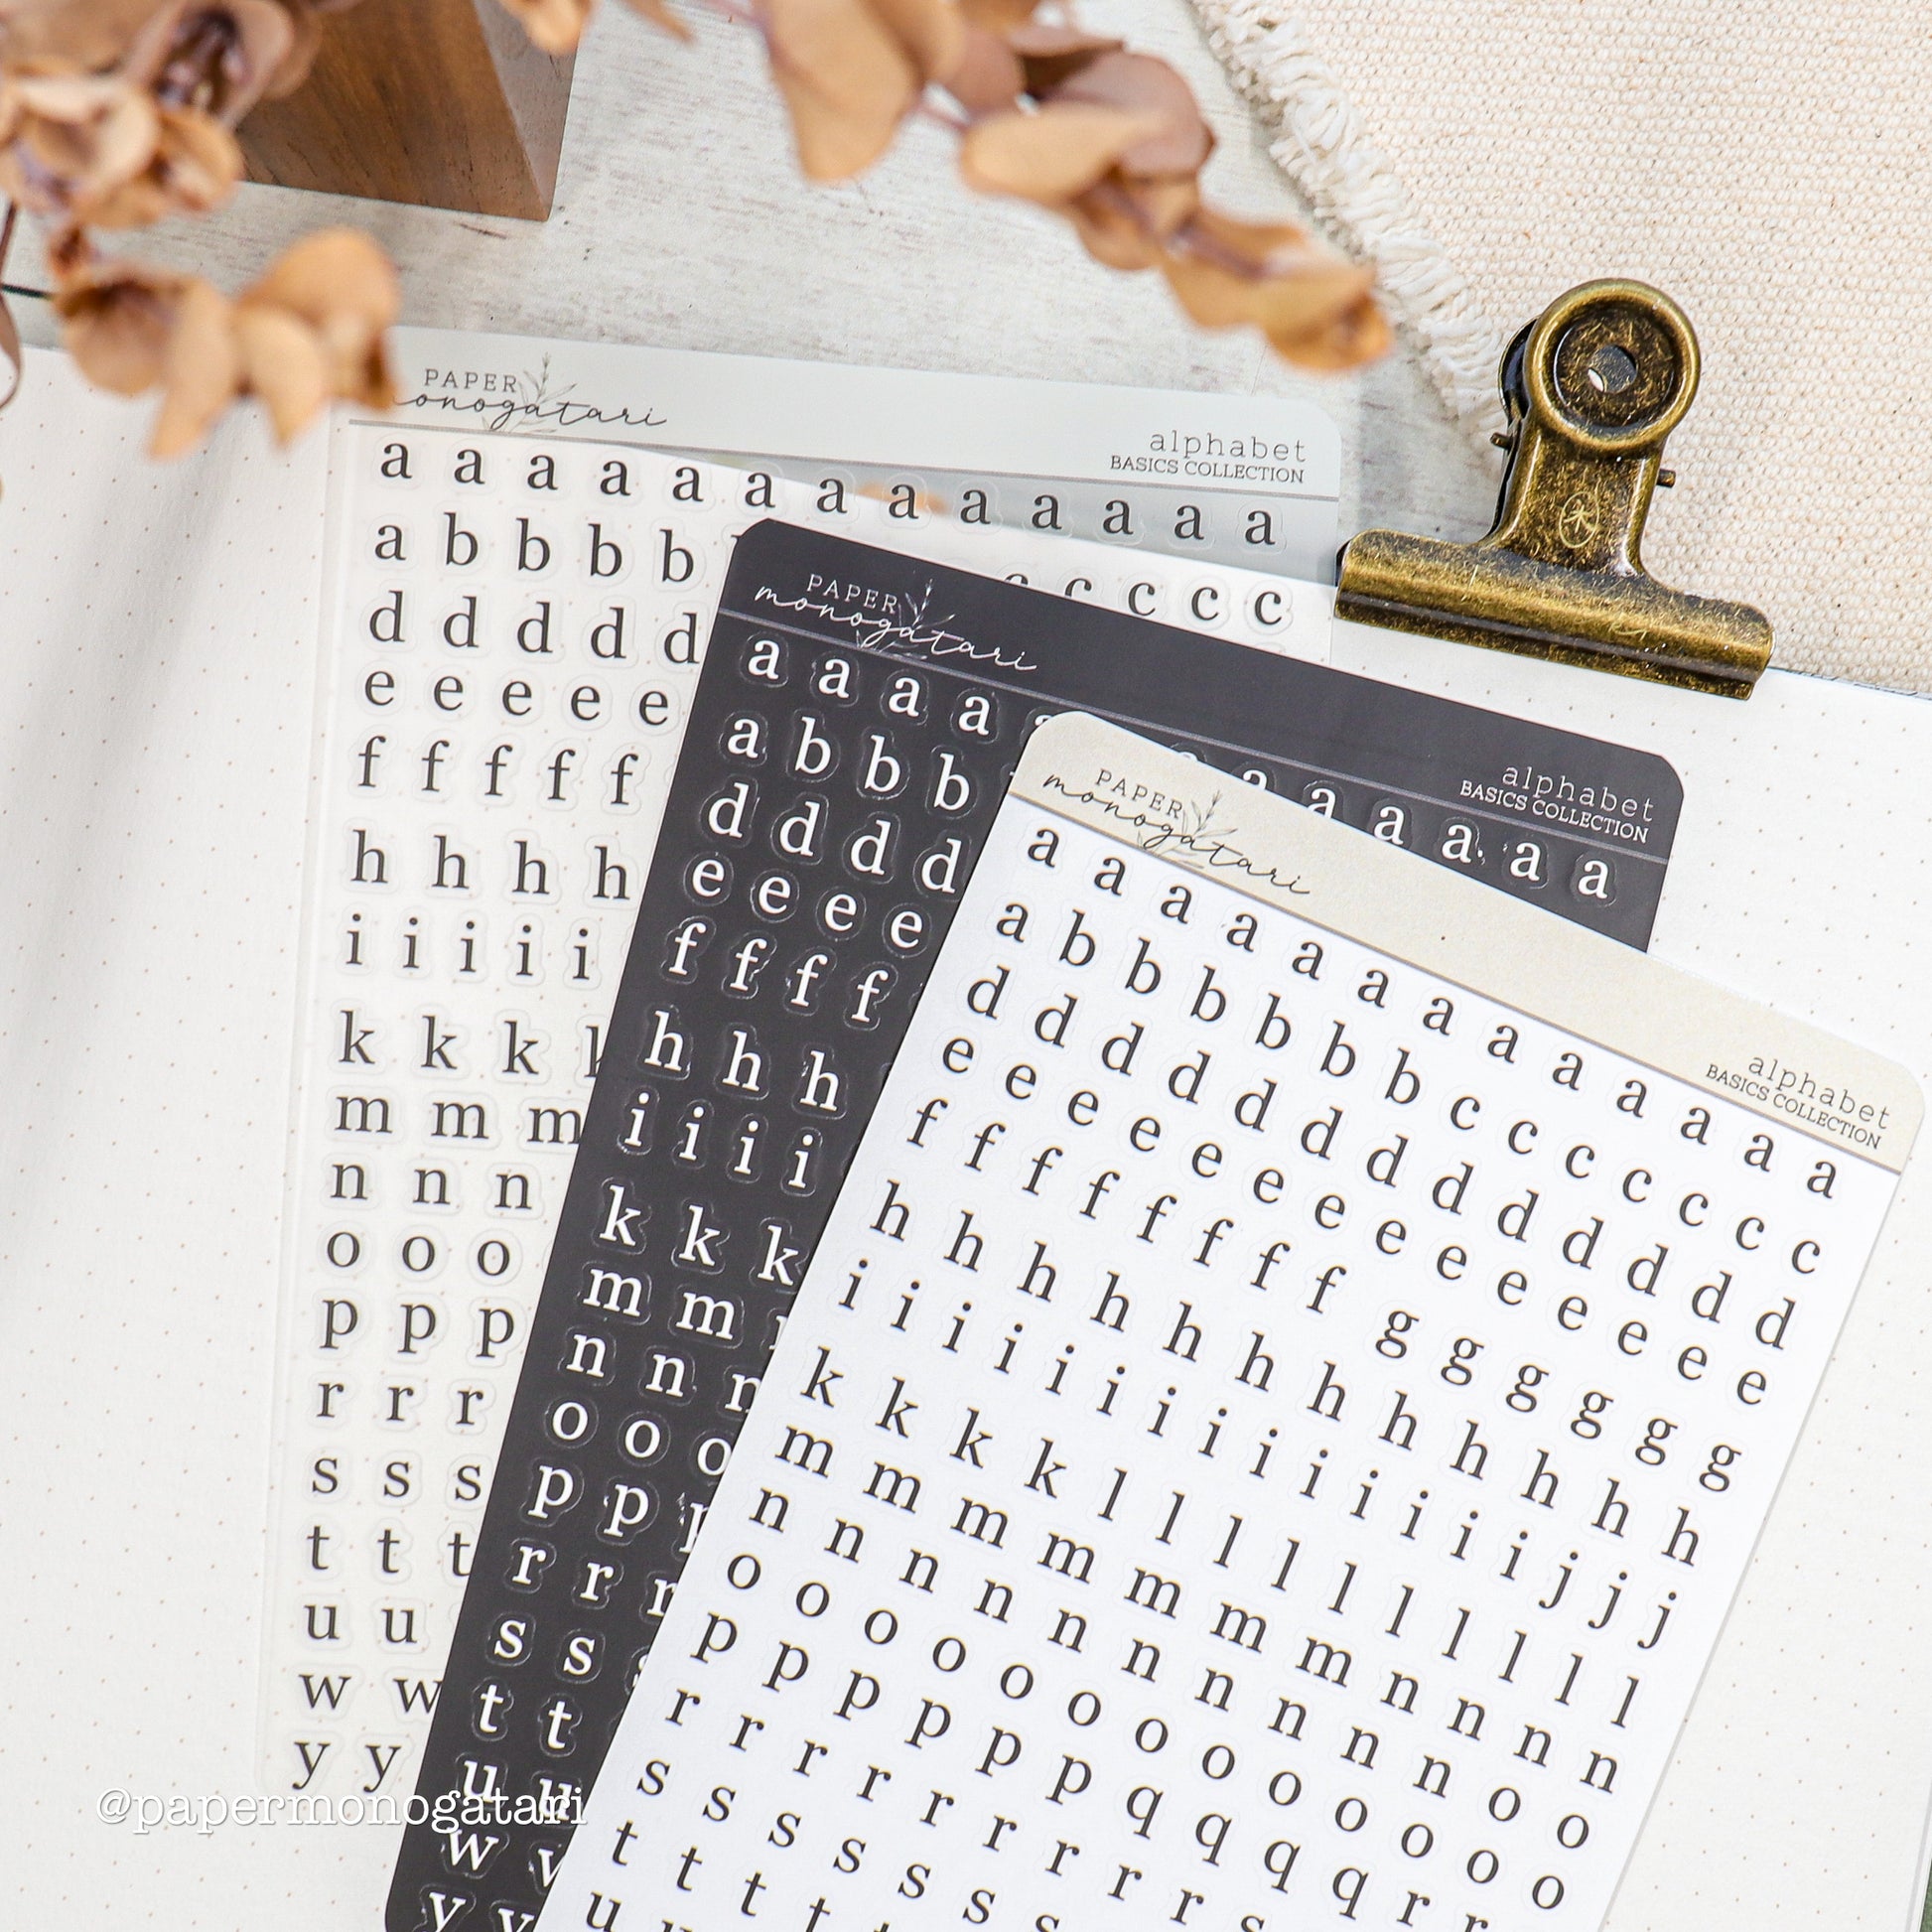 PAPER
monogatari
alphabet
BASICS COLLECTION
a a a a a a a a a a a a a
a b b b b c c c
d d d d d
e e e e e
f f f f f
h h h h
i i i i i
k k k
m m m
n n n
o o o
p p p
r r r
s s s
t t t
u u
w w
y y
PAPER
monogatari
alphabet
BASICS COLLECTION
a a a a a a a a a
a b b b
d d d d
e e e e
f f f f
h h h
i i i i
k k k
m m
n n n
o o o
p p
r r
s s
t t
u u
w
y
PAPER
monogatari
alphabet
BASICS COLLECTION
a a a a a a a a a a a a a
a b b b b b b c c c c c c c
d d d d d d d d d d d d d
e e e e e e e e e e e e e e
f f f f f f f f g g g g g g
h h h h h h h h h h h h
i i i i i i i i i i i i i i j j j
k k k k l l l l l l l l l l
m m m m m m m n n n n
n n n n n n n n n n o o
o o o o o o o o o o o o o
p p p p p p q q q q r r
r r r r r r r r r
s s s s s s
t t t t
u
@papermonogatari